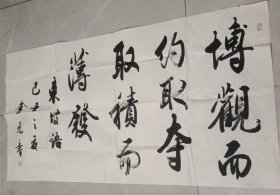 博觀而
约取
取積而
薄發
東坡語
己丑之夏